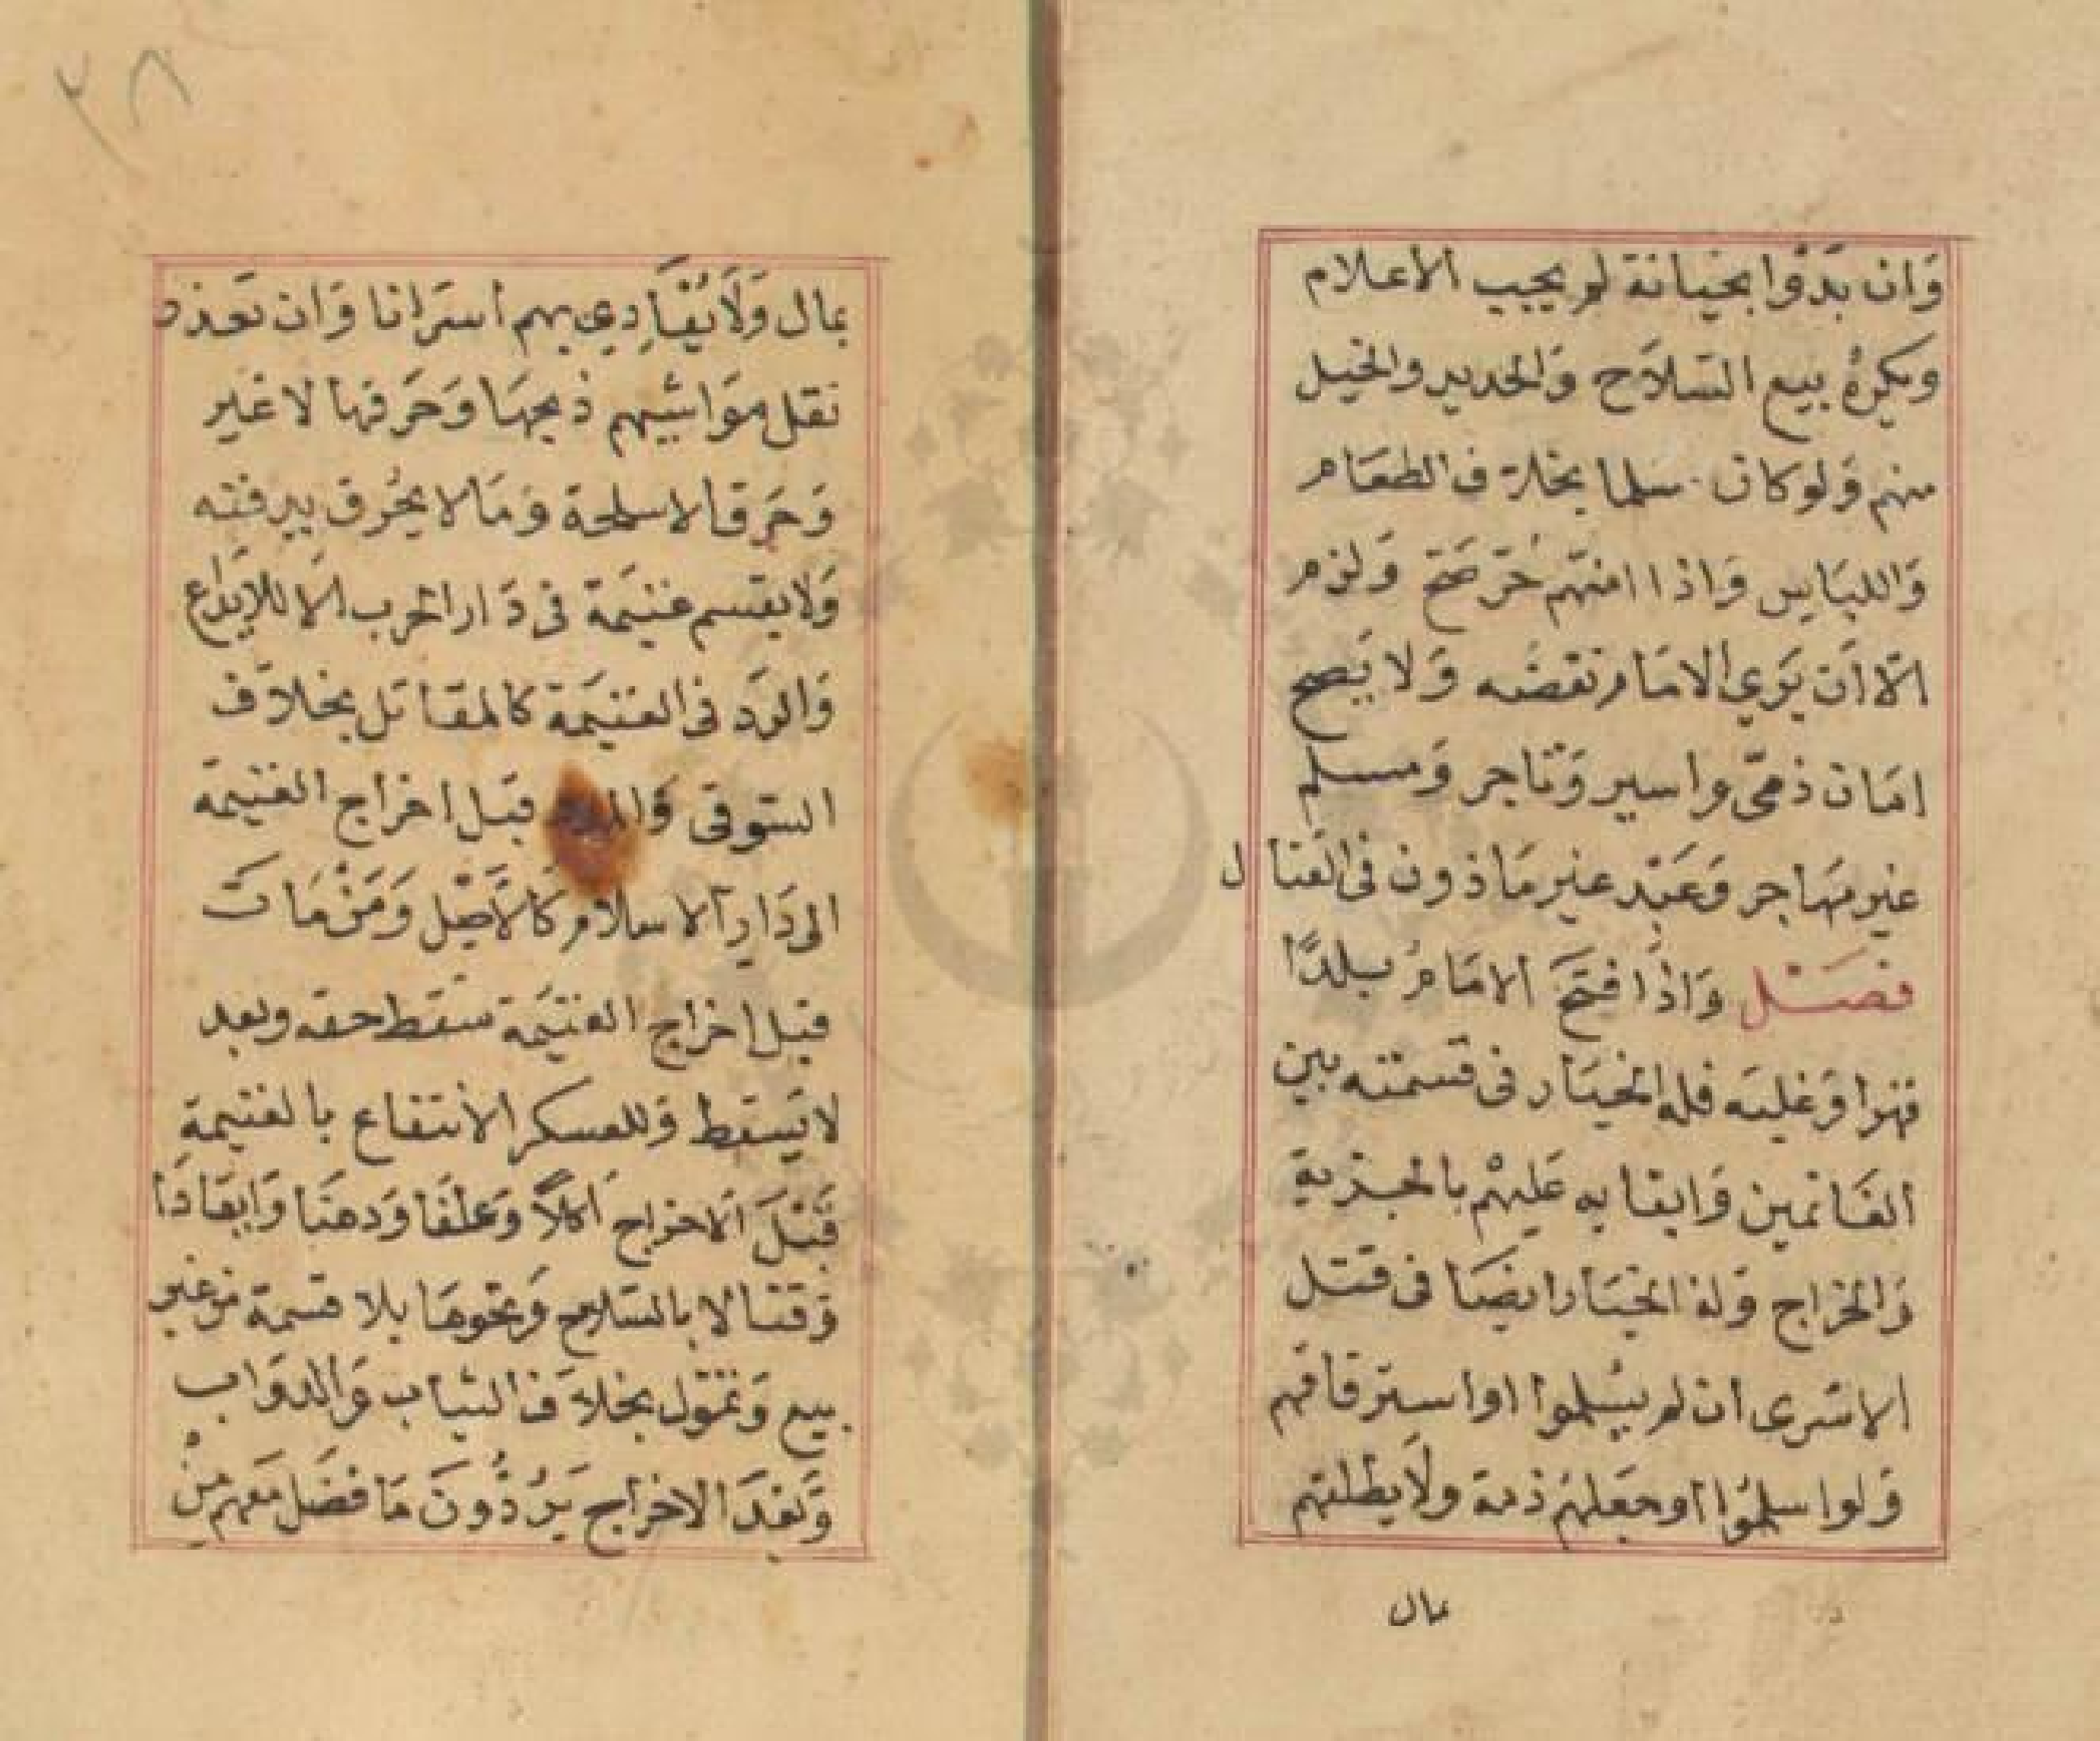 وَان بَدَؤا بخيانة لم يجب الاعلام
ويكرهُ بيع السّلاَح وَالحديد والخيل
منهم وَلو كان سلما بخلاف الطعَام
وَاللبَاس وَاذا امنهم حُرّ صَحّ وَلزم
الاّ ان يَرَي الامَام نقضَه وَلا يَصح
امَان ذمّى واسير وَتاجر وَمسلم
غير مهَاجر وَعَبْد غير مَاذون فى القتال
فصَْل وَاذا فتَحَ الامَامُ بلدًا
قهرا وَغلبَه فله الخيَار فى قسمته بين
الغَانمين وَابقايه عَليْهم بالجزية
وَالخراج وَله الخيَار ايضَا فى قتل
الاسَرى ان لم يسْلموا او استرقاقهم
وَلو اسلمُوا او جعَلهم ذمة ولاَ يطلقهم
بمال
٣٨
بمال وَلاَ يُفَادِي بهم اسَرانا وَان تعَذر
نقل موَاشيهم ذبحهَا وَحَرقها لا غير
وَحَرق الاسلحة وَمَا لا يحُرق يدفنه
وَلا يقسم غنيمَة فى دَار الحرب الاّ للايدَاع
وَالردَ فى الغنيمَة كالمقَاتل بخلاَف
السّوقى وَالمدد قبَل اخراج الغنيمَة
الى دَارِ الاسلام كَالاَصْل وَمَنْ مَات
قبل اخراج الغنيمَة سَقَط حقه وبعد
لا يَسقط وَللعسكر الانتفاع بالغنيمةِ
قَبْلَ الاخراج اكلاً وَعلفَا وَدهنَا وَايقادَا
وَقتالا بالسّلاح وَنحوهَا بلا قسمة من غير
بيع وَتموّل بخلاَف الثياب وَالدوَاب
وَبَعْدَ الاخراج يَرُدُّونَ مَا فضَل مَعهم مِنْ